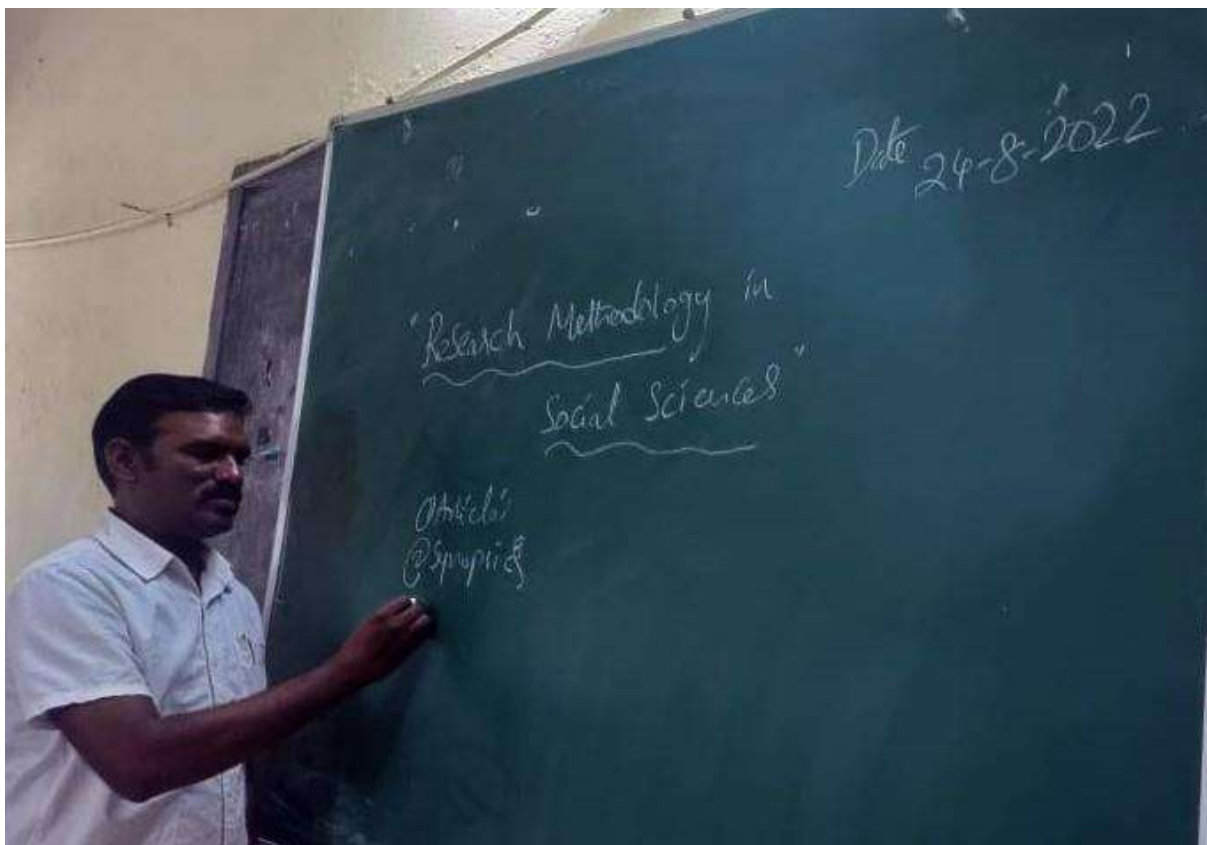 Date 24-8-2022
"Research Methodology in
Social Sciences"
① Articles
② Synopsis